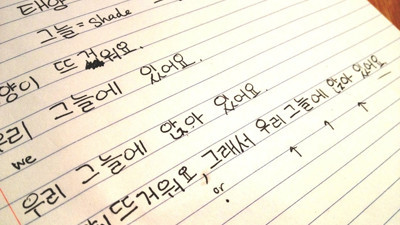 태양
그늘 = Shade
양이 뜨거워요.
우리 그늘에 있어요.
we
우리 그늘에 앉아 있어요.
이 뜨거워요, 그래서 우리 그늘에 앉아 있어요
or.